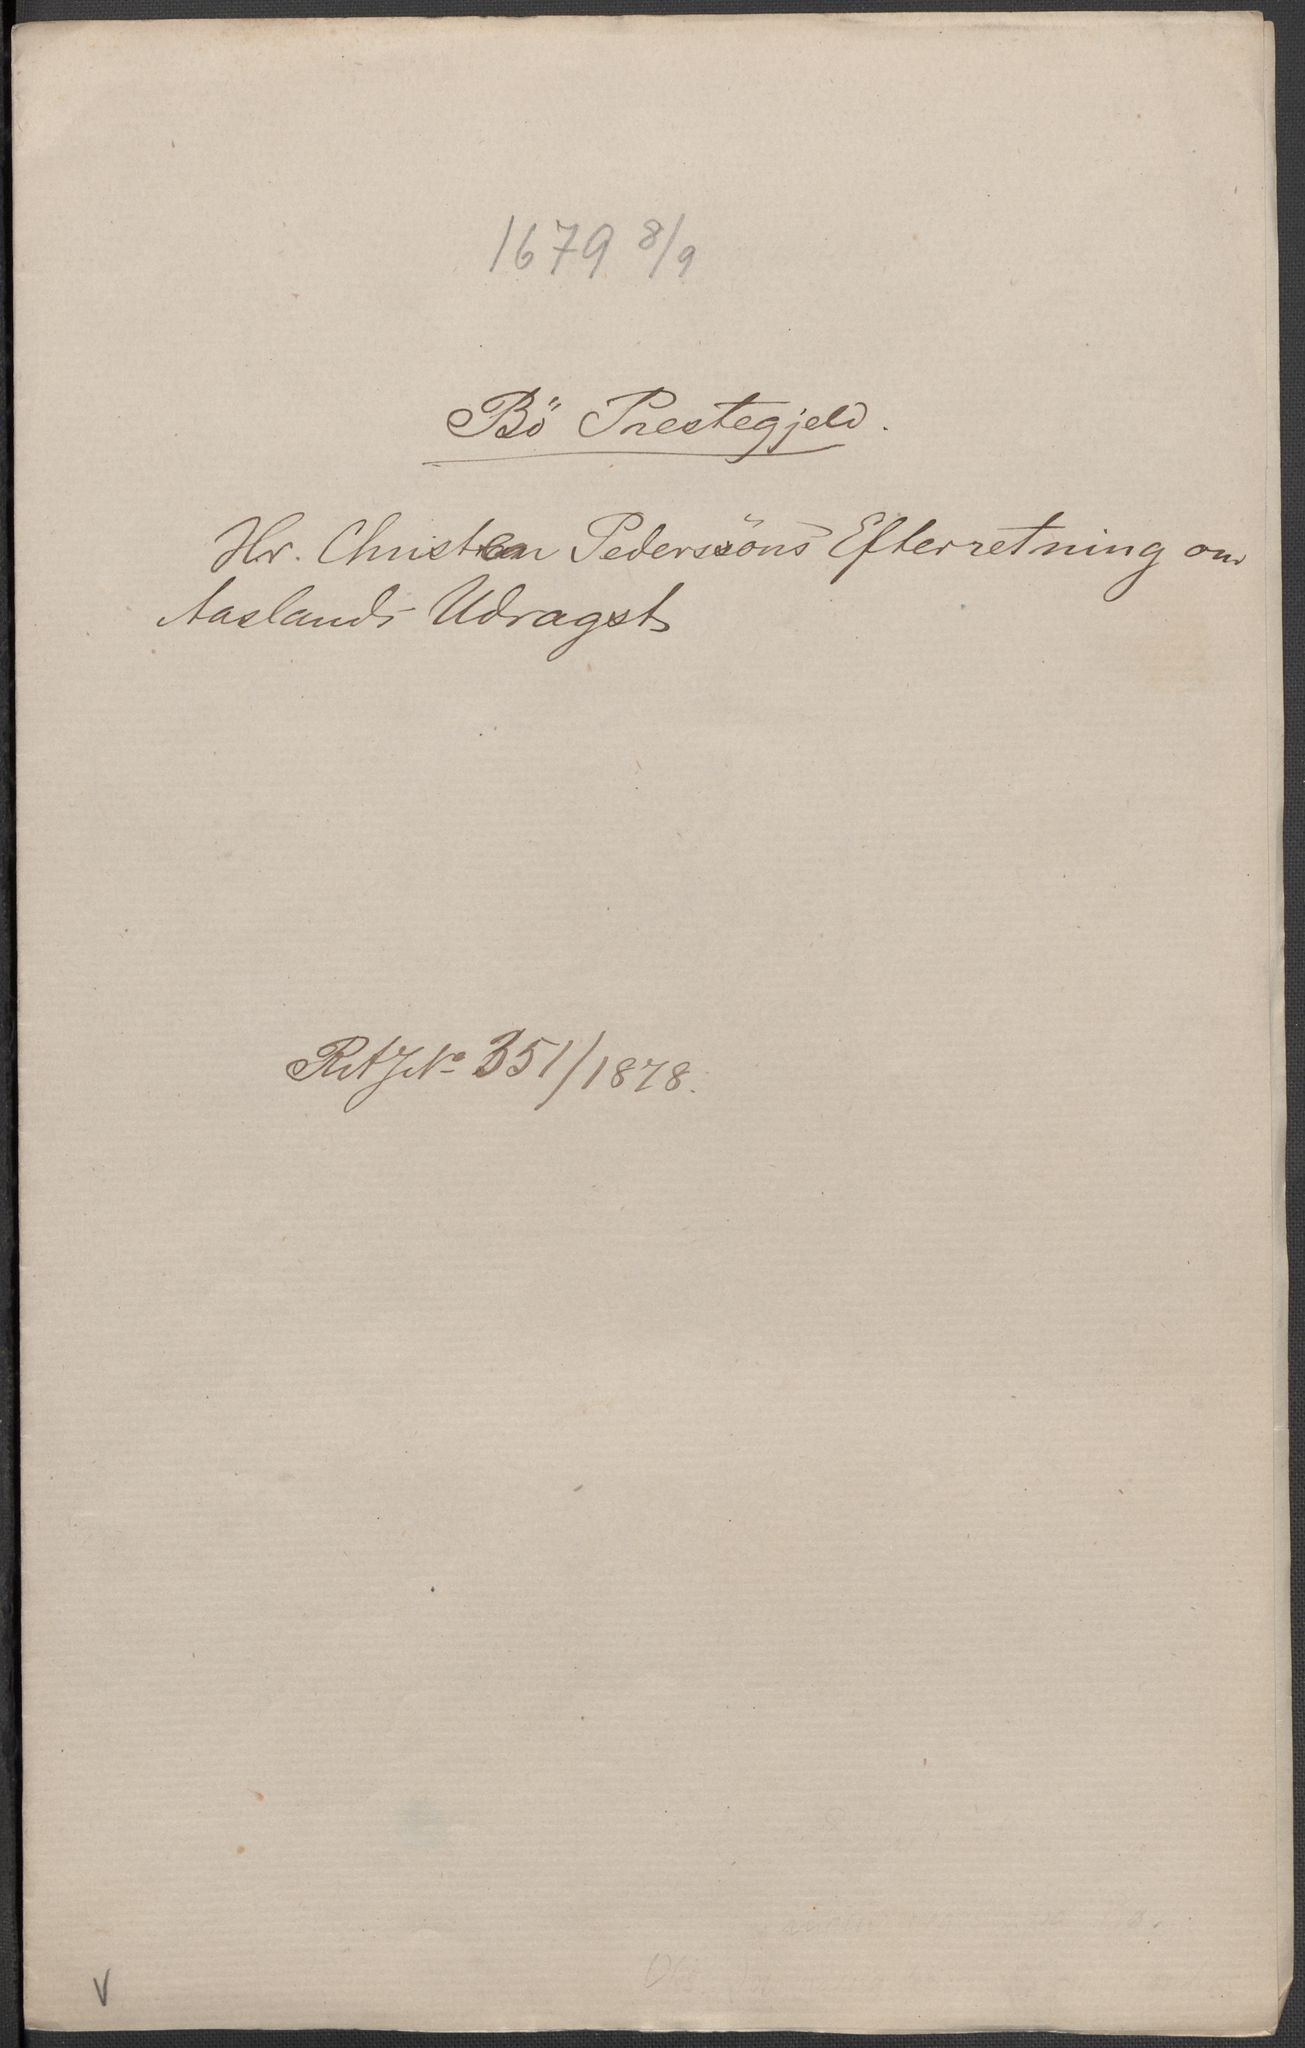 1679 8/9
Bö Prestegjeld.
Hr. Christen Pederssöns Efterretning om
Aaslands Udragst
RAJNo 351/1878.
V